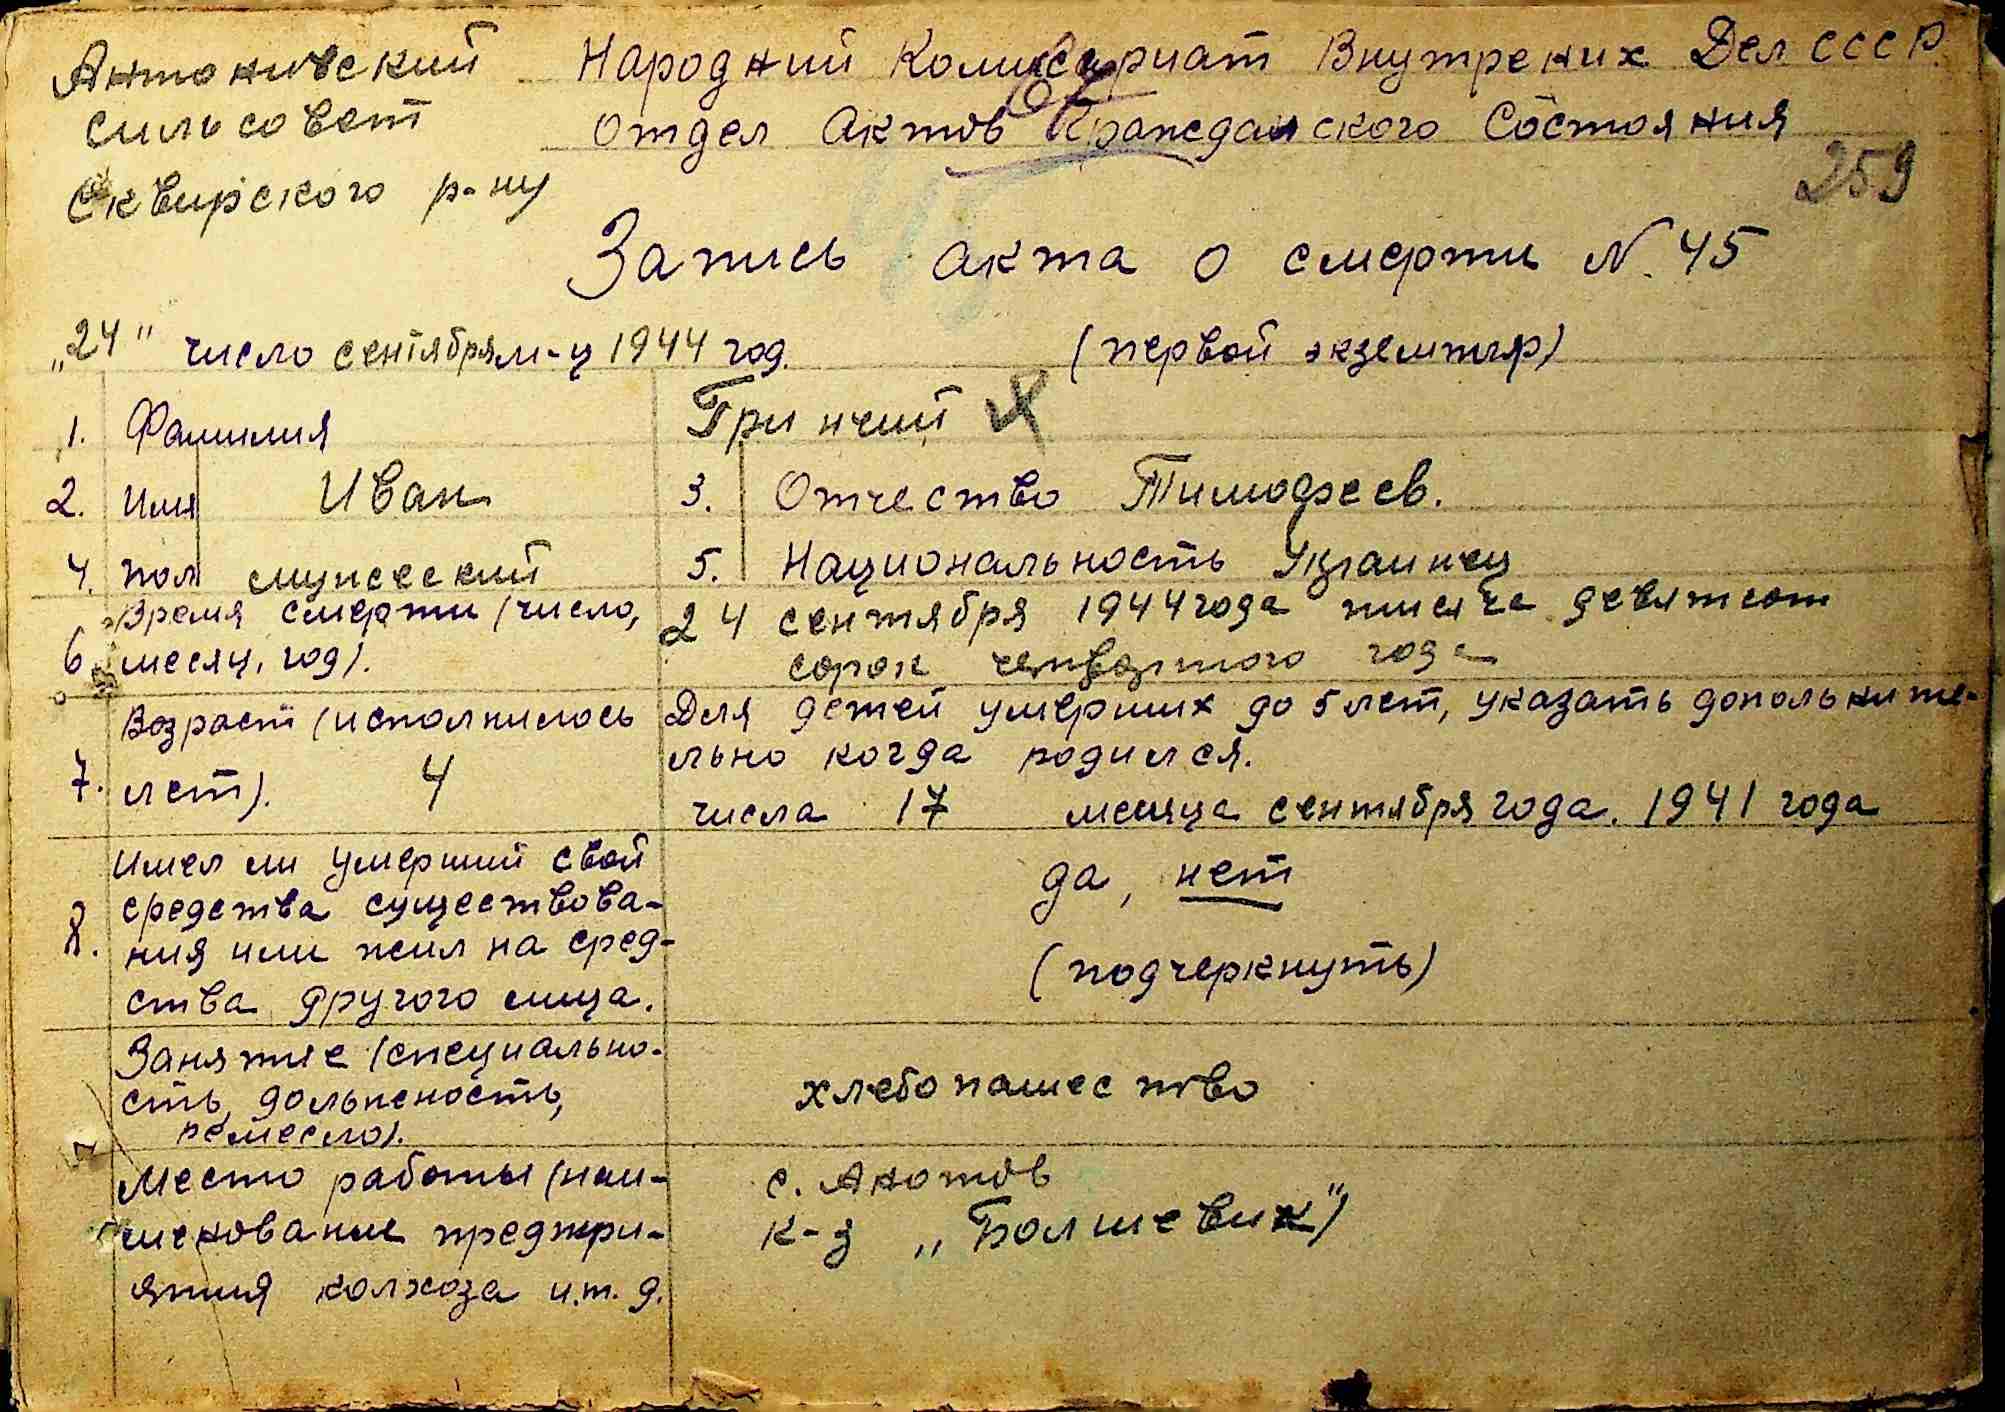 Антонивский
сильсовет
Сквирского р-ну
Народний Комисариат Внутрених Дел СССР.
Отдел Актов Гражданского Состояния
259
Запись акта о смерти N. 45
„24" число сентября м-ц 1944 год.
(первой экземпляр)
1. Фамилия Гринчий
2. Имя Иван 3. Отчество Тимофеев.
4. пол мужеский 5. Национальность Украинец
6. Время смерти (число, месяц, год).
24 сентября 1944 года тисяча девятсот
сорок четвертого года
7. Возраст (исполнилось
лет). 4
Для детей умерших до 5 лет, указать дополните-
льно когда родился.
числа 17 месяца сентября года. 1941 года
8. Имел ли умерший свой
средства существова-
ния или жил на сред-
ства другого лица.
да, нет
(подчеркнуть)
Занятие (специально-
сть, должность,
ремесло).
хлебопашество
Место работы (наи-
менование предпри-
ятия колхоза и.т.д.
с. Анотов
к-з „Болшевик")